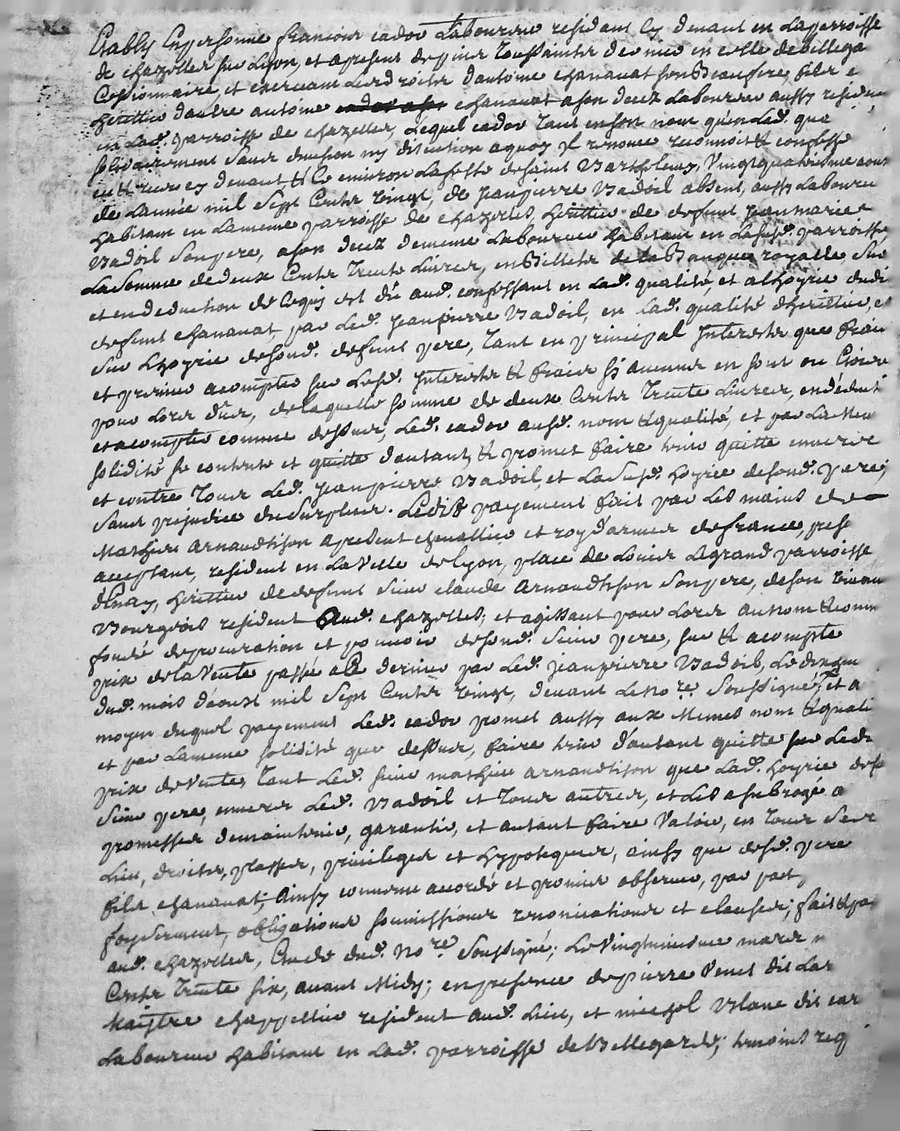 Estably En personne francois cador Laboureur residant cy devant en Laparroisse
de chazelles sur Lyon, et apresent depuis Toussaints dernier en celle de Bellega
Cessionnaire, et exercant Lesdroits d'antoine chanavat son Beaufrere, fils e
heritier d'autre antoine chanavat ason deces Laboureur aussy residant
en Lad. parroisse de chazelles, Lequel cador tant enson nom qu'en Lad. qua
solidairement sans division ny discution aquoy Il renonce reconnoit & confesse
en & receu cy devant & Environ Lafeste desaint Barthelemy, vingtquatriesme aoust
de Lannée mil Sept Cents vingt, de Jeanpierre Badoil absent, aussy Laboureur
habitant en Lameme parroisse de chazelles, heritier de defunt Jeanmarie
Badoil Sonpere, ason deces dememe Laboureur habitant en Lasusd. parroisse
La Somme dedeux Cents Trente Livres, en Billets de La Banque royalle Sur
et en deduction de Cequi est dû aud. confessant en Lad. qualité et alhoyrie dudi
defunt chanavat par Led. Jeanpierre Badoil, en Lad. qualité d'heritier, et
sur Lhoyrie desond. defunt pere, tant en principal Interests que frais
et premier acompte sur Lesd. Interests & frais si aucuns en sont ou Etoient
pour Lors dus, delaquelle somme de deux Cents Trente Livres, endeduct
et acompte comme dessus, Led. cador ausd. nom & qualité, et par Lameme
solidité se contente et quitte d'autant, & promet faire tenir quitte envers
et contre Tous Led. Jeanpierre Badoil, et La Susd. hoyrie desond. pere,
Sans prejudice du Surplus. Ledit payement fait par Les mains de
Mathieu arnaudtison apresent chevallier et roy d'armes defrance, present
acceptant, resident en La Ville de Lyon, place de Louis Legrand parroisse
d'Enay, heritier de defunt Sieur claude arnaudtison Sonpere, deson vivant
Bourgeois resident Aud. chazelles; et agissant pour Lors au nom & comme
fondé de procuration et pouvoir desond. Sieur pere, sur & acompte
prix de la Vente passée a Ce dernier par Led. Jeanpierre Badoil, Le
dud. mois d'aoust mil Sept Cents vingt, devant Le No.re Soussigné, Et a
moyen duquel payement Led. cador promet aussy aux Memes nom & quali
et par Lameme solidité que dessus, faire tenir d'autant quitte sur Led.
prix de vente, Tant Led. sieur mathieu arnaudtison que Lad. hoyrie des
Sieur pere, envers Led. Badoil et Tous autres, et Les a subrogé a
promesses de maintenir, garantir, et autant faire Valoir, en Tous Ses
Lieu, droits, places, privileges et hypoteques, ainsy que desd. pere
fils chanavat; Ainsy convenu accordé et promis observer, par foy,
serment, obligations soumissions renonciations et clauses; fait & pa
aud. chazelles, Etude dud. No.re Soussigné; Le Vingtuniesme mars m
Cents Trente six, avant Midy; en presence de pierre Venet dit Lar
Maistre chappellier resident aud. Lieu, et michel Blanc dit car
Laboureur habitant en Lad. parroisse de Bellegarde, temoins req